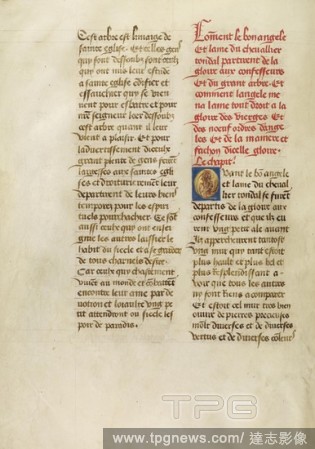 Cest arbre est limaige de
sainte eglise. Et celles gens
qui sont dessoubz sont ceulx
qui ont mis leur estude
a sainte eglise ediffier et
essaucher qui se vien
nent pour esbatre et pour
seigneur loer dessoubz
cest arbre quant il leur
vient a plaisir. Et pour
ladvertissement dieulx
grant plente de gens font
larges aux saintes egli
ses et droiturie nent leur
departent de leurs biens
temporelz pour les espiri
tuelz pourchachier. Et sont
aussi ceulx qui ont en leur
les autres laissier le
habit du siecle et a se garder
de tous charnelz desirs.
Car ceulx qui chastement
vivent au monde et combatent
encontre leur ame par de
votion et loiaulte ung pe
tit attendront ou siecle les
joie de paradis.
Comment le bon angele
Et lame du chevallier
tondal partirent de la
gloire aux confesseurs
Et du grant arbre. Et
comment langele me
na lame tout droit a la
gloire des vierges Et
des noeuf ordres dange
les Et de la maniere et
fachon dicelle gloire.
Le chapitre
Quant le bon angele
et lame du cheval
lier tondal se furent
departis de la gloire aux
confesseurs et que ilz eu
rent ung petit ale avant
Ilz apperchurent tantost
ung mur qui tant estoit
plus hault et plus bel et
plus resplendissant a
veoir que tous les autres
ny sont riens a comparer
Et estoit cel mur tres bien
ouvre de pierres precieuses
moult diverses et de diverses
vertus et de diverses couleurs
TPG
www.tpgnews.com/ 達志影像